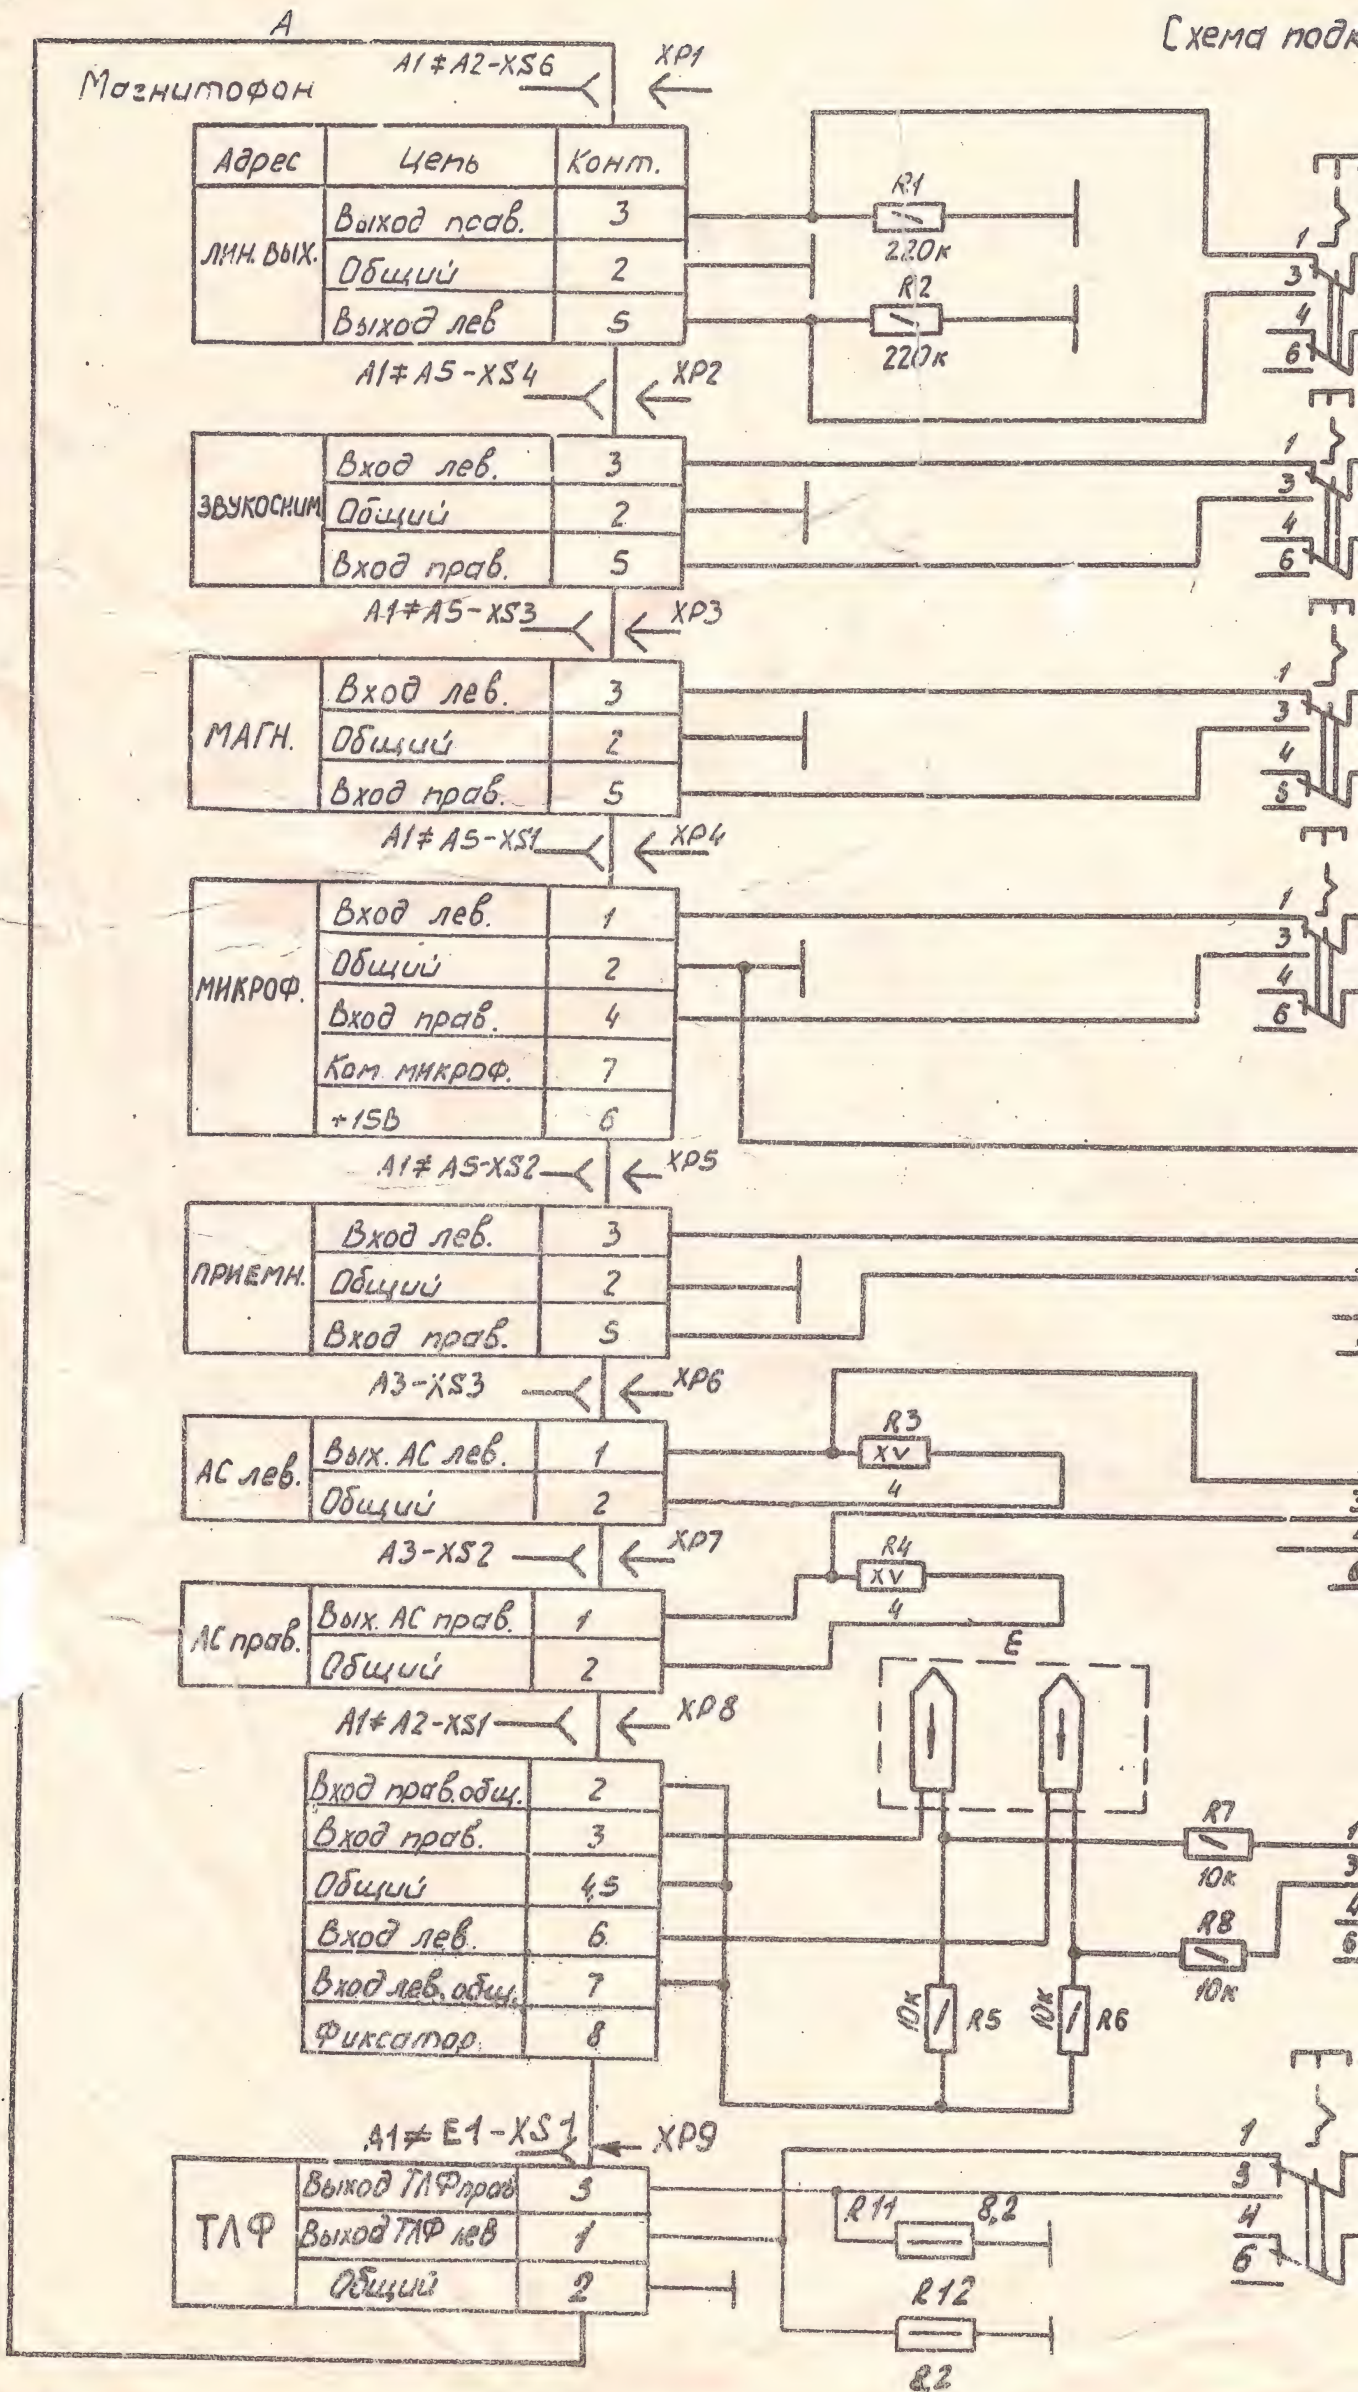 А
Схема подк
Магнитофон
A1≠A2-XS6
XP1
Адрес Цепь Конт.
ЛИН. ВЫХ.
Выход псав. 3
Общий 2
Выход лев 5
R1
220к
R2
220к
1
3
4
6
A1≠A5-XS4
XP2
ЗВУКОСНИМ
Вход лев. 3
Общий 2
Вход прав. 5
1
3
4
6
A1≠A5-XS3
XP3
МАГН.
Вход лев. 3
Общий 2
Вход прав. 5
1
3
4
5
A1≠A5-XS1
XP4
МИКРОФ.
Вход лев. 1
Общий 2
Вход прав. 4
Ком микроф. 7
+15В 6
1
3
4
6
A1≠A5-XS2
XP5
ПРИЕМН.
Вход лев. 3
Общий 2
Вход прав. 5
A3-XS3
XP6
АС лев.
Вых. АС лев. 1
Общий 2
R3
XV
4
A3-XS2
XP7
АС прав.
Вых. АС прав. 1
Общий 2
R4
XV
4
E
A1≠A2-XS1
XP8
Вход прав.общ. 2
Вход прав. 3
Общий 4,5
Вход лев. 6
Вход лев.общ. 7
Фиксатор. 8
R7
10к
R8
10к
10к R5
10к R6
1
3
4
6
A1≠E1-XS1
XP9
ТЛФ
Выход ТЛФ прав 3
Выход ТЛФ лев 1
Общий 2
R11 8,2
R12
8,2
1
3
4
6